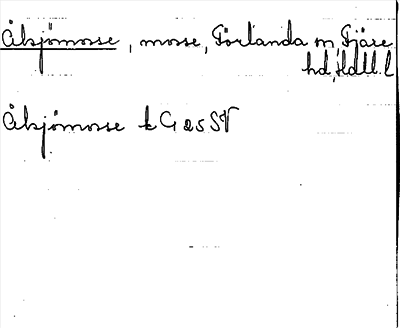 Åkjömosse, mosse, Förlanda sn, Fjäre
hd, Hall. l
Åkjömosse k G 25 SV